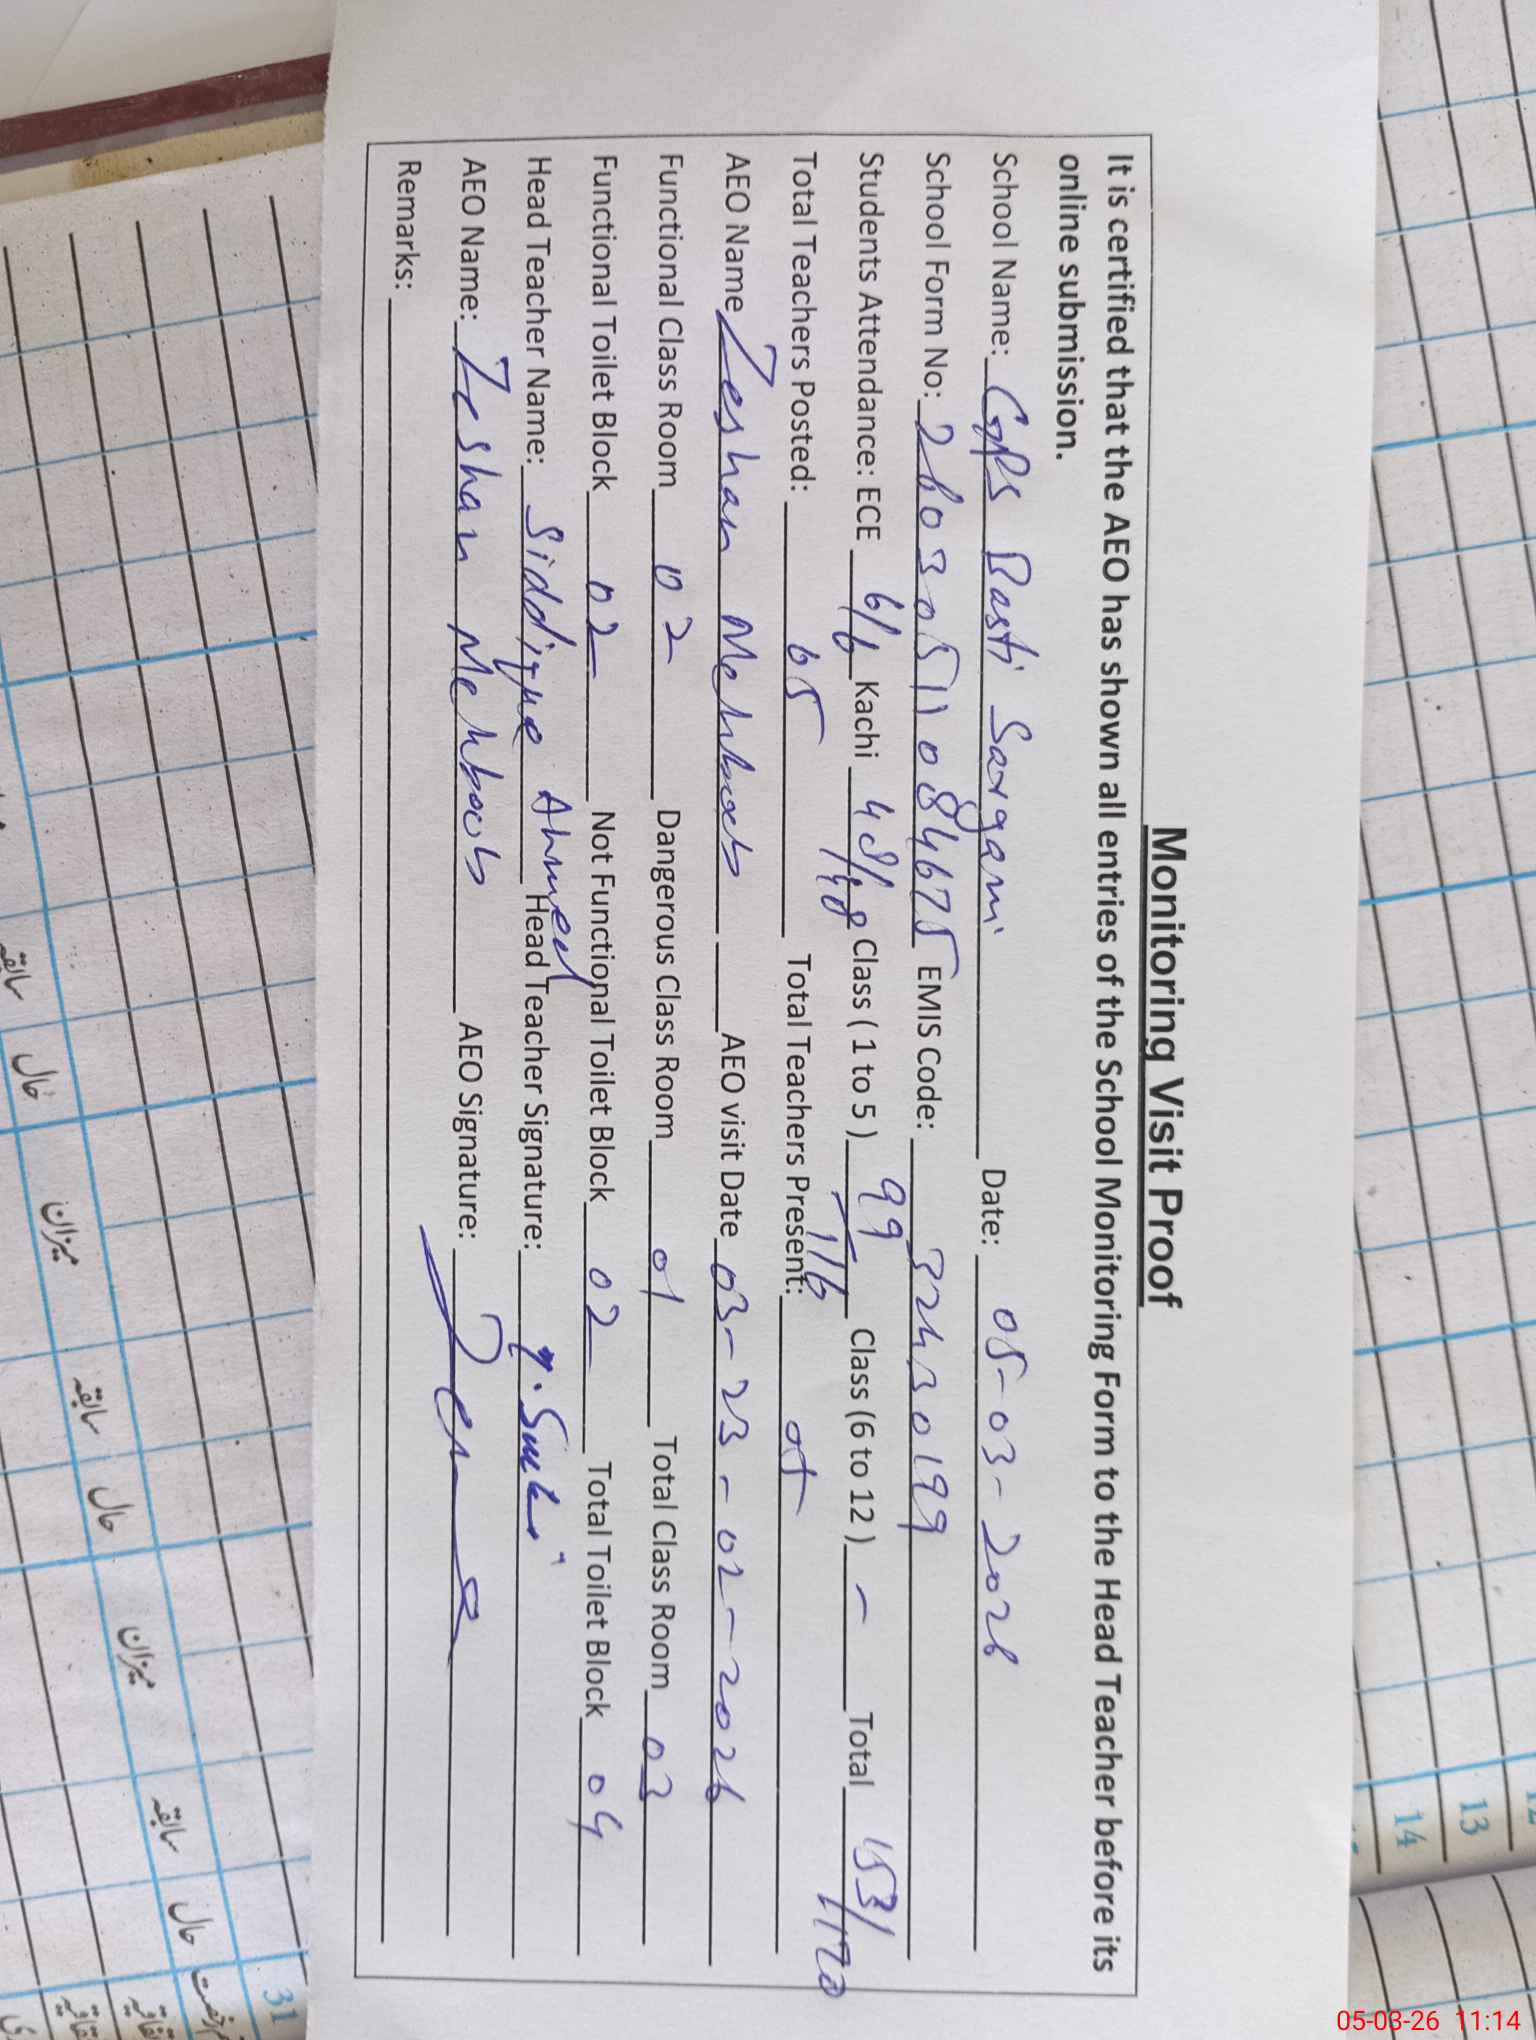 Monitoring Visit Proof
It is certified that the AEO has shown all entries of the School Monitoring Form to the Head Teacher before its
online submission.
School Name: GPS Basti Sargani Date: 05-03-2026
School Form No: 26030511084675 EMIS Code: 32430199
Students Attendance: ECE 6/6 Kachi 48/48 Class ( 1 to 5 ) 99/116 Class (6 to 12 ) - Total 153/170
Total Teachers Posted: 05 Total Teachers Present:
AEO Name Zeshan Mehboob AEO visit Date 03-23-02-2026
Functional Class Room 02 Dangerous Class Room 01 Total Class Room 03
Functional Toilet Block 02 Not Functional Toilet Block 02 Total Toilet Block 04
Head Teacher Name: Siddique Ahmed Head Teacher Signature:
AEO Name: Zeshan Mehboob AEO Signature:
Remarks:
13
14
31
سابقہ
حال
میزان
سابقہ
حال
میزان
سابقہ
حال
05-03-26 11:14